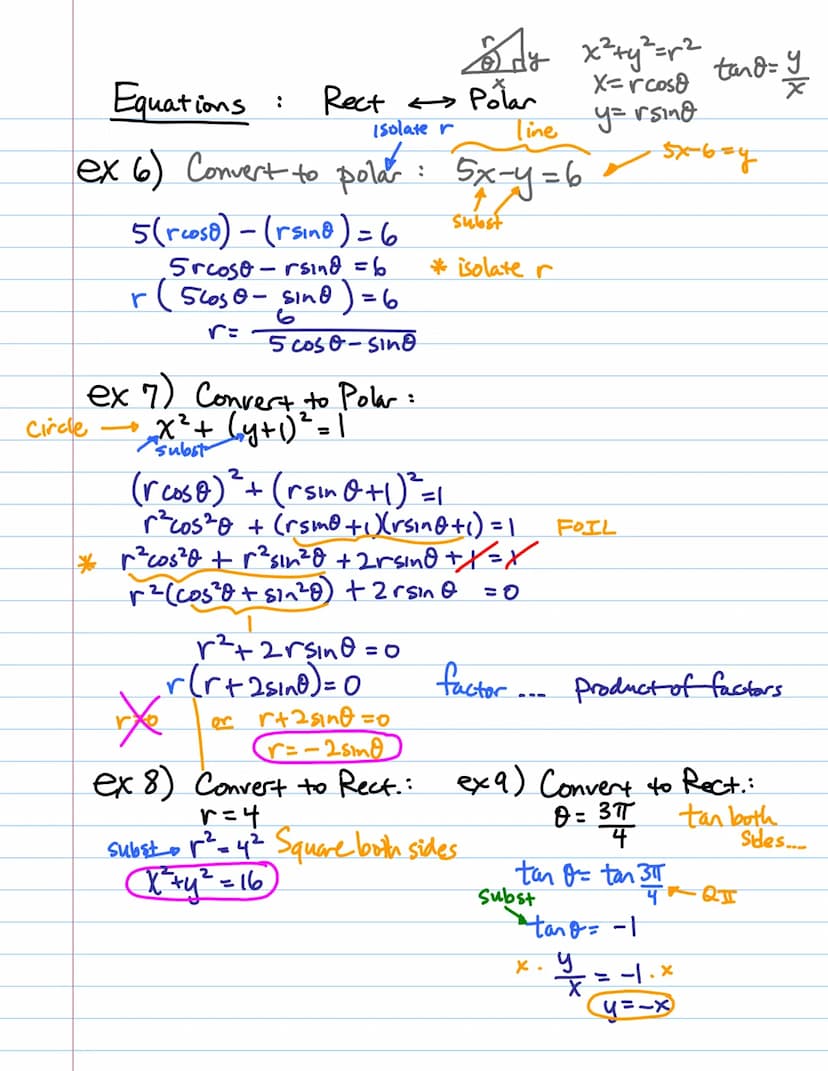 r y θ x
x²+y²=r²
x=rcosθ
y=rsinθ
tanθ=y/x
Equations : Rect ↔ Polar
isolate r
line
ex 6) Convert to polar : 5x-y=6
5x-6=y
subst
5(rcosθ) - (rsinθ) = 6
5rcosθ - rsinθ = 6 * isolate r
r(5cosθ - sinθ) = 6
r = 6/(5cosθ - sinθ)
ex 7) Convert to Polar :
Circle → x² + (y+1)² = 1
subst
(rcosθ)² + (rsinθ+1)² = 1
r²cos²θ + (rsinθ+1)(rsinθ+1) = 1 FOIL
* r²cos²θ + r²sin²θ + 2rsinθ + 1 = 1
r²(cos²θ + sin²θ) + 2rsinθ = 0
1
r² + 2rsinθ = 0
r(r+2sinθ) = 0 factor ... product of factors
r=0 or r+2sinθ=0
r=-2sinθ
ex 8) Convert to Rect.:
r=4
subst → r²=4² Square both sides
x²+y²=16
ex 9) Convert to Rect.:
θ = 3π/4 tan both sides...
tan θ = tan 3π/4 ← QII
subst
tan θ = -1
x · y/x = -1 · x
y=-x